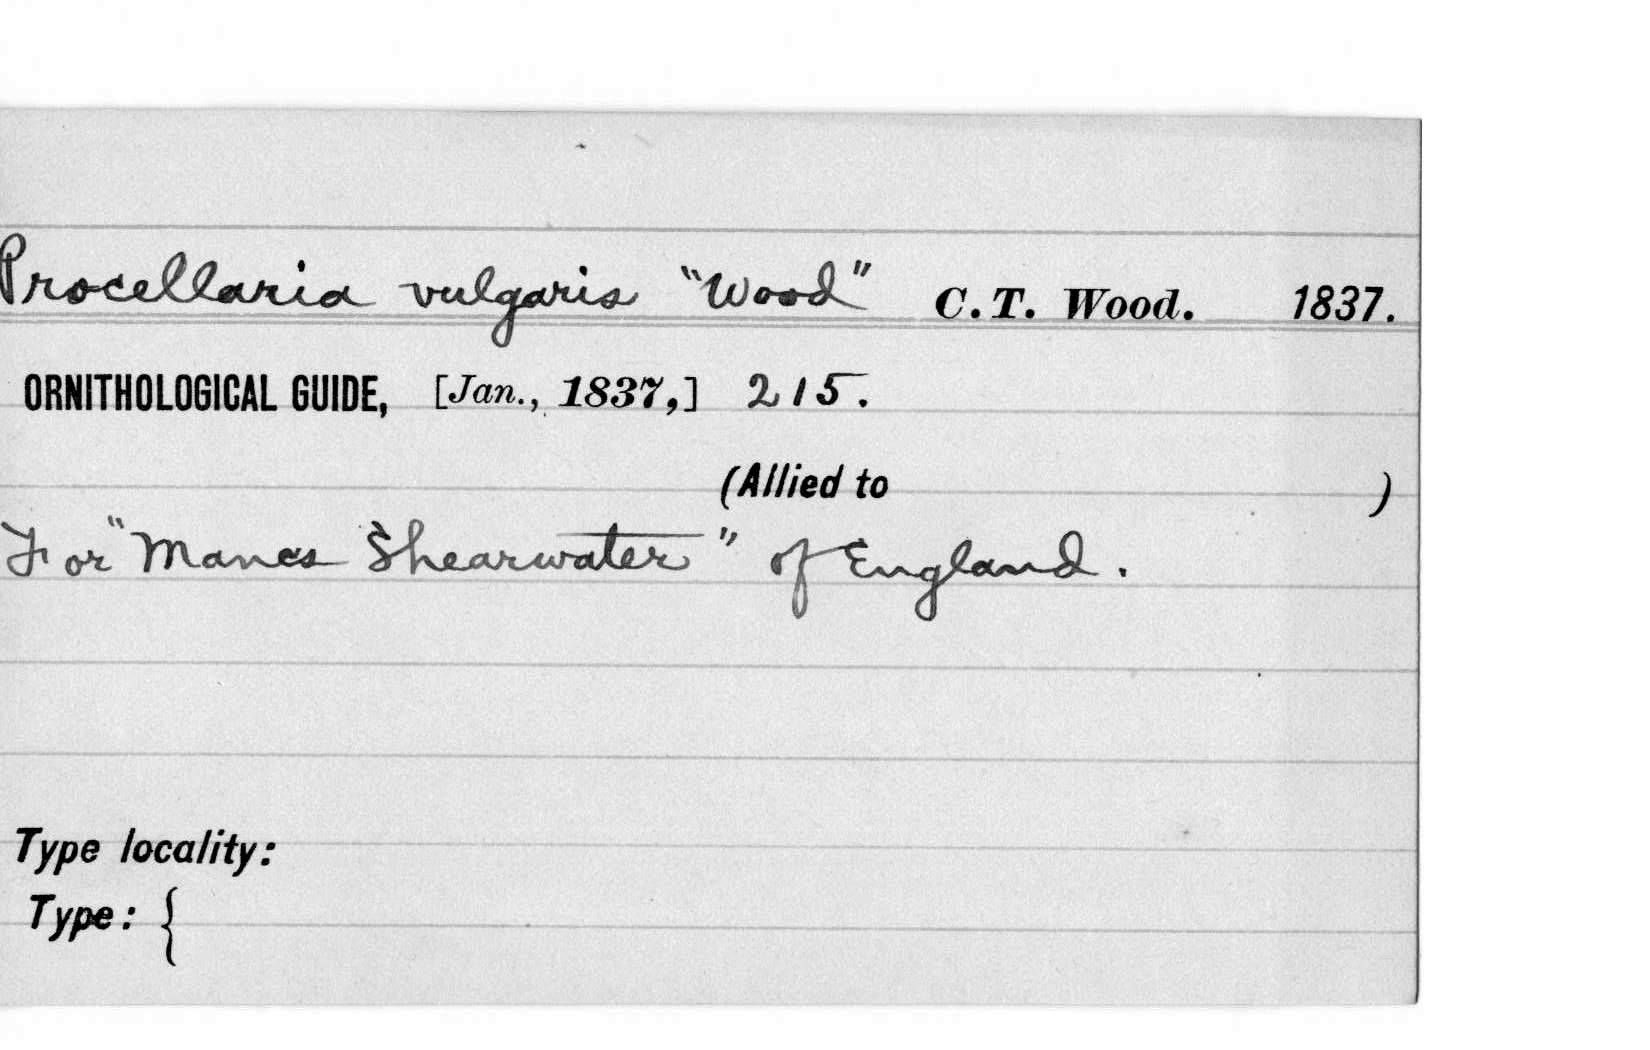 Procellaria vulgaris "Wood" C. T. Wood. 1837.
ORNITHOLOGICAL GUIDE, [Jan., 1837,] 215.
(Allied to )
For "Manes Shearwater" of England.
Type locality:
Type: {